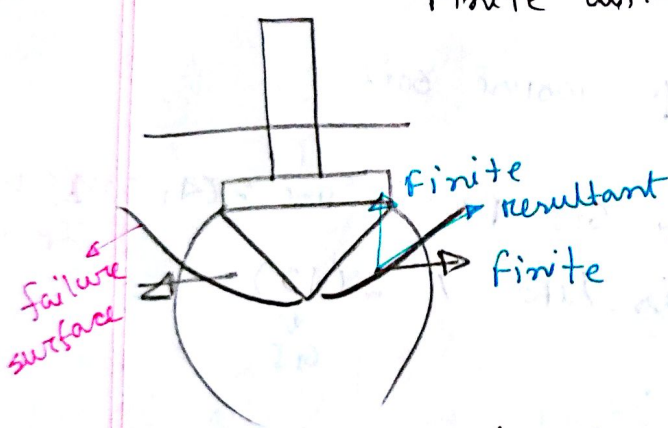 Finite
Finite
resultant
Finite
failure
surface